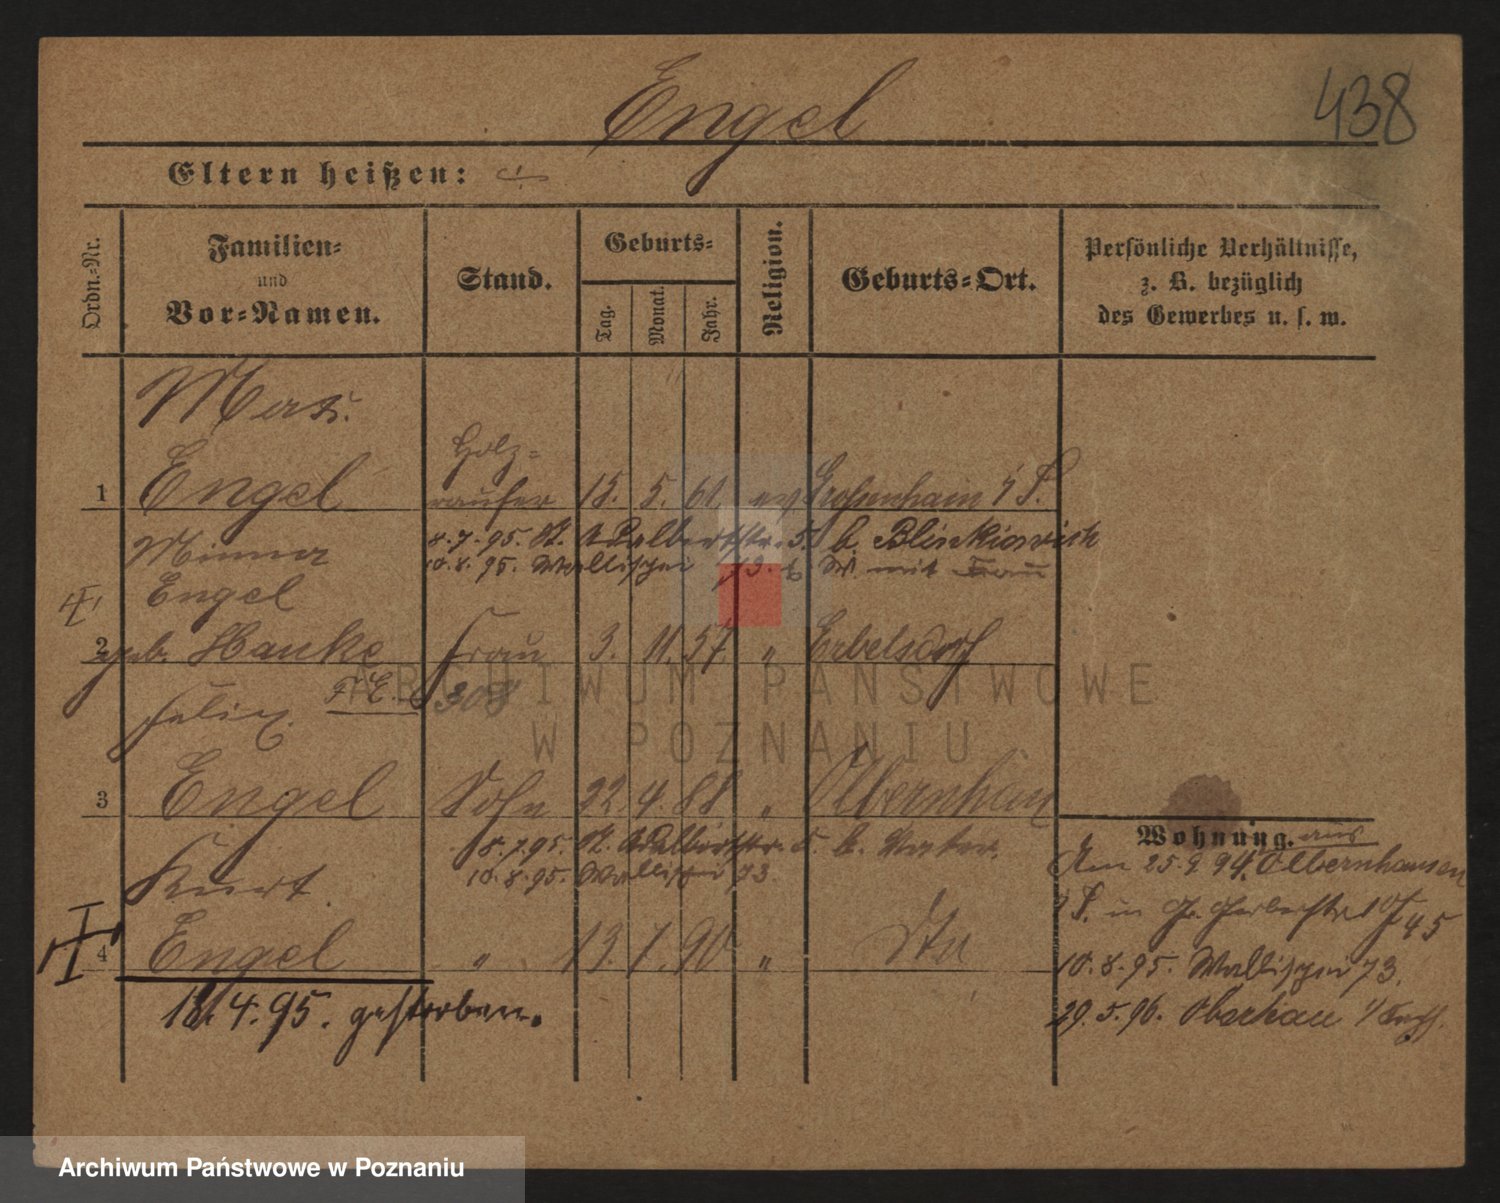 Engel
438
Eltern heißen:
Ordn.=Nr.
Familien=
und
Vor=Namen.
Stand.
Geburts=
Tag.
Monat.
Jahr.
Religion.
Geburts=Ort.
Persönliche Verhältnisse,
z. B. bezüglich
des Gewerbes u. s. w.
Holz=
1 Engel 15. 5. 61. ev Großenhain i/S.
Minna
8.7.95. St. Adalbertstr. 5. b.
10.8.95. Wallischei 73. b. W. mit Frau
Engel
2 geb. Hanke Frau 3. 11. 57. " Erbelsdorf
Felix F. E. 308
3 Engel Sohn 22. 4. 88 " Olbernhau
Kurt.
8.7.95. St. Adalbertstr. 5 b. Vater.
10.8.95. Wallischei 73.
4 Engel " 13. 7. 90 " Dto
18.4.95. gestorben.
Wohnung. aus
Am 25.9.94. Olbernhausen
i/S. in Gr. Gerberstr.
10.8.95. Wallischei 73.
29.5.96. Oberhau i/Sachs.
ARCHIWUM PAŃSTWOWE
W POZNANIU
Archiwum Państwowe w Poznaniu